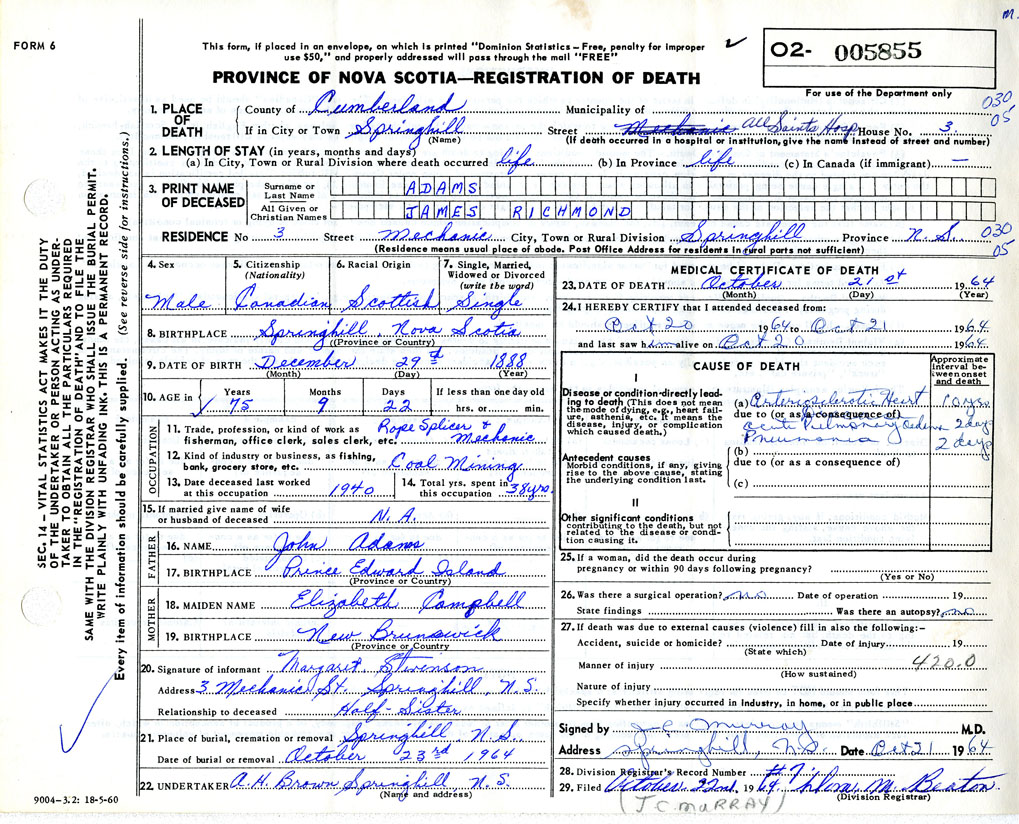 M.
FORM 6
This form, if placed in an envelope, on which is printed "Dominion Statistics – Free, penalty for improper
use $50," and properly addressed will pass through the mail "FREE"
✓
O2- 005855
PROVINCE OF NOVA SCOTIA—REGISTRATION OF DEATH
For use of the Department only
1. PLACE OF DEATH
County of Cumberland Municipality of
030
05
If in City or Town Springhill Street Mechanic All Saints Hosp House No. 3.
(Name) (If death occurred in a hospital or institution, give the name instead of street and number)
2. LENGTH OF STAY (in years, months and days)
(a) In City, Town or Rural Division where death occurred life (b) In Province life (c) In Canada (if immigrant) —
3. PRINT NAME OF DECEASED
Surname or Last Name ADAMS
All Given or Christian Names JAMES RICHMOND
RESIDENCE No 3 Street Mechanic City, Town or Rural Division Springhill Province N.S.
030
05
(Residence means usual place of abode. Post Office Address for residents in rural parts not sufficient)
4. Sex
Male
5. Citizenship
(Nationality)
Canadian
6. Racial Origin
Scottish
7. Single, Married,
Widowed or Divorced
(write the word)
Single
8. BIRTHPLACE Springhill, Nova Scotia
(Province or Country)
9. DATE OF BIRTH December 29th 1888
(Month) (Day) (Year)
10. AGE in
Years Months Days If less than one day old
✓ 75 9 22 hrs. or min.
OCCUPATION
11. Trade, profession, or kind of work as
fisherman, office clerk, sales clerk, etc. Rope Splicer & Mechanic
12. Kind of industry or business, as fishing,
bank, grocery store, etc. Coal Mining
13. Date deceased last worked
at this occupation 1940
14. Total yrs. spent in
this occupation 38 yrs.
15. If married give name of wife
or husband of deceased N. A.
FATHER
16. NAME John Adams
17. BIRTHPLACE Prince Edward Island
(Province or Country)
MOTHER
18. MAIDEN NAME Elizabeth Campbell
19. BIRTHPLACE New Brunswick
(Province or Country)
20. Signature of informant Margaret Stevenson
Address 3 Mechanic St. Springhill, N.S.
Relationship to deceased Half-Sister
21. Place of burial, cremation or removal Springhill, N.S.
Date of burial or removal October 23rd 1964
22. UNDERTAKER A.H. Brown Springhill N.S.
(Name and address)
MEDICAL CERTIFICATE OF DEATH
23. DATE OF DEATH October 21st 1964
(Month) (Day) (Year)
24. I HEREBY CERTIFY that I attended deceased from:
Oct 20 1964 to Oct 21 1964
and last saw him alive on Oct 20 1964.
CAUSE OF DEATH
Approximate interval between onset and death
I
Disease or condition directly leading to death (This does not mean the mode of dying, e.g., heart failure, asthenia, etc. It means the disease, injury, or complication which caused death.)
(a) Arteriosclerotic Heart 10 yrs
due to (or as a consequence of)
acute Pulmonary Oedema 2 days
Pneumonia 2 days
(b)
Antecedent causes
Morbid conditions, if any, giving rise to the above cause, stating the underlying condition last.
due to (or as a consequence of)
(c)
II
Other significant conditions
contributing to the death, but not related to the disease or condition causing it.
25. If a woman, did the death occur during
pregnancy or within 90 days following pregnancy?
(Yes or No)
26. Was there a surgical operation? no Date of operation 19
State findings Was there an autopsy? no
27. If death was due to external causes (violence) fill in also the following:–
Accident, suicide or homicide? Date of injury 19
(State which)
Manner of injury 420.0
(How sustained)
Nature of injury
Specify whether injury occurred in industry, in home, or in public place
Signed by J.C. Murray M.D.
Address Springhill, N.S. Date Oct 21 1964
28. Division Registrar's Record Number #9
29. Filed October 22nd. 1964 M. Beaton
(Division Registrar)
(J.C. MURRAY)
SEC. 14 – VITAL STATISTICS ACT MAKES IT THE DUTY
OF THE UNDERTAKER OR PERSON ACTING AS UNDER-
TAKER TO OBTAIN ALL THE PARTICULARS REQUIRED
IN THE "REGISTRATION OF DEATH" AND TO FILE THE
SAME WITH THE DIVISION REGISTRAR WHO SHALL ISSUE THE BURIAL PERMIT.
WRITE PLAINLY WITH UNFADING INK. THIS IS A PERMANENT RECORD.
Every item of information should be carefully supplied. (See reverse side for instructions.)
9004-3.2: 18-5-60